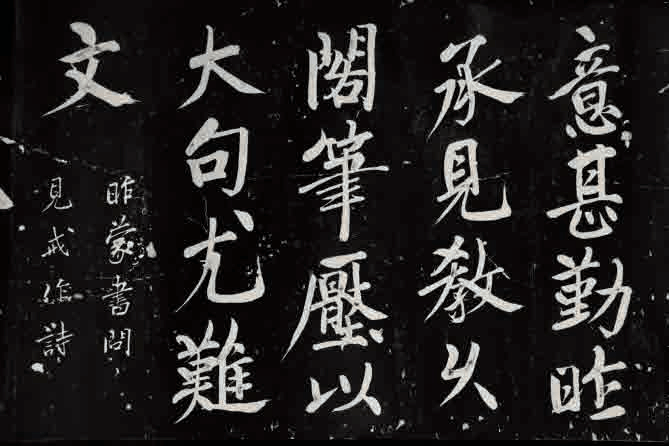 意甚勤昨
承見教久
閣筆壓以
大句尤難
文
昨蒙書問
見戒作詩